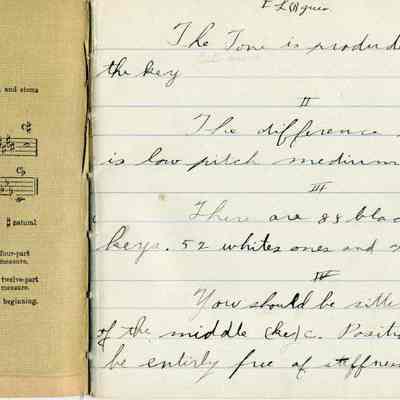 and stems
C♯
C♭
♮ natural
four-part
measure.
twelve-part
measure.
beginning.
The Tone is
the key
II
The difference
is low pitch medium
III
There are 88 blac
keys. 52 whites ones and
IV
You should be sitte
of the middle (key) c. Positi
be entirly free of stiffness